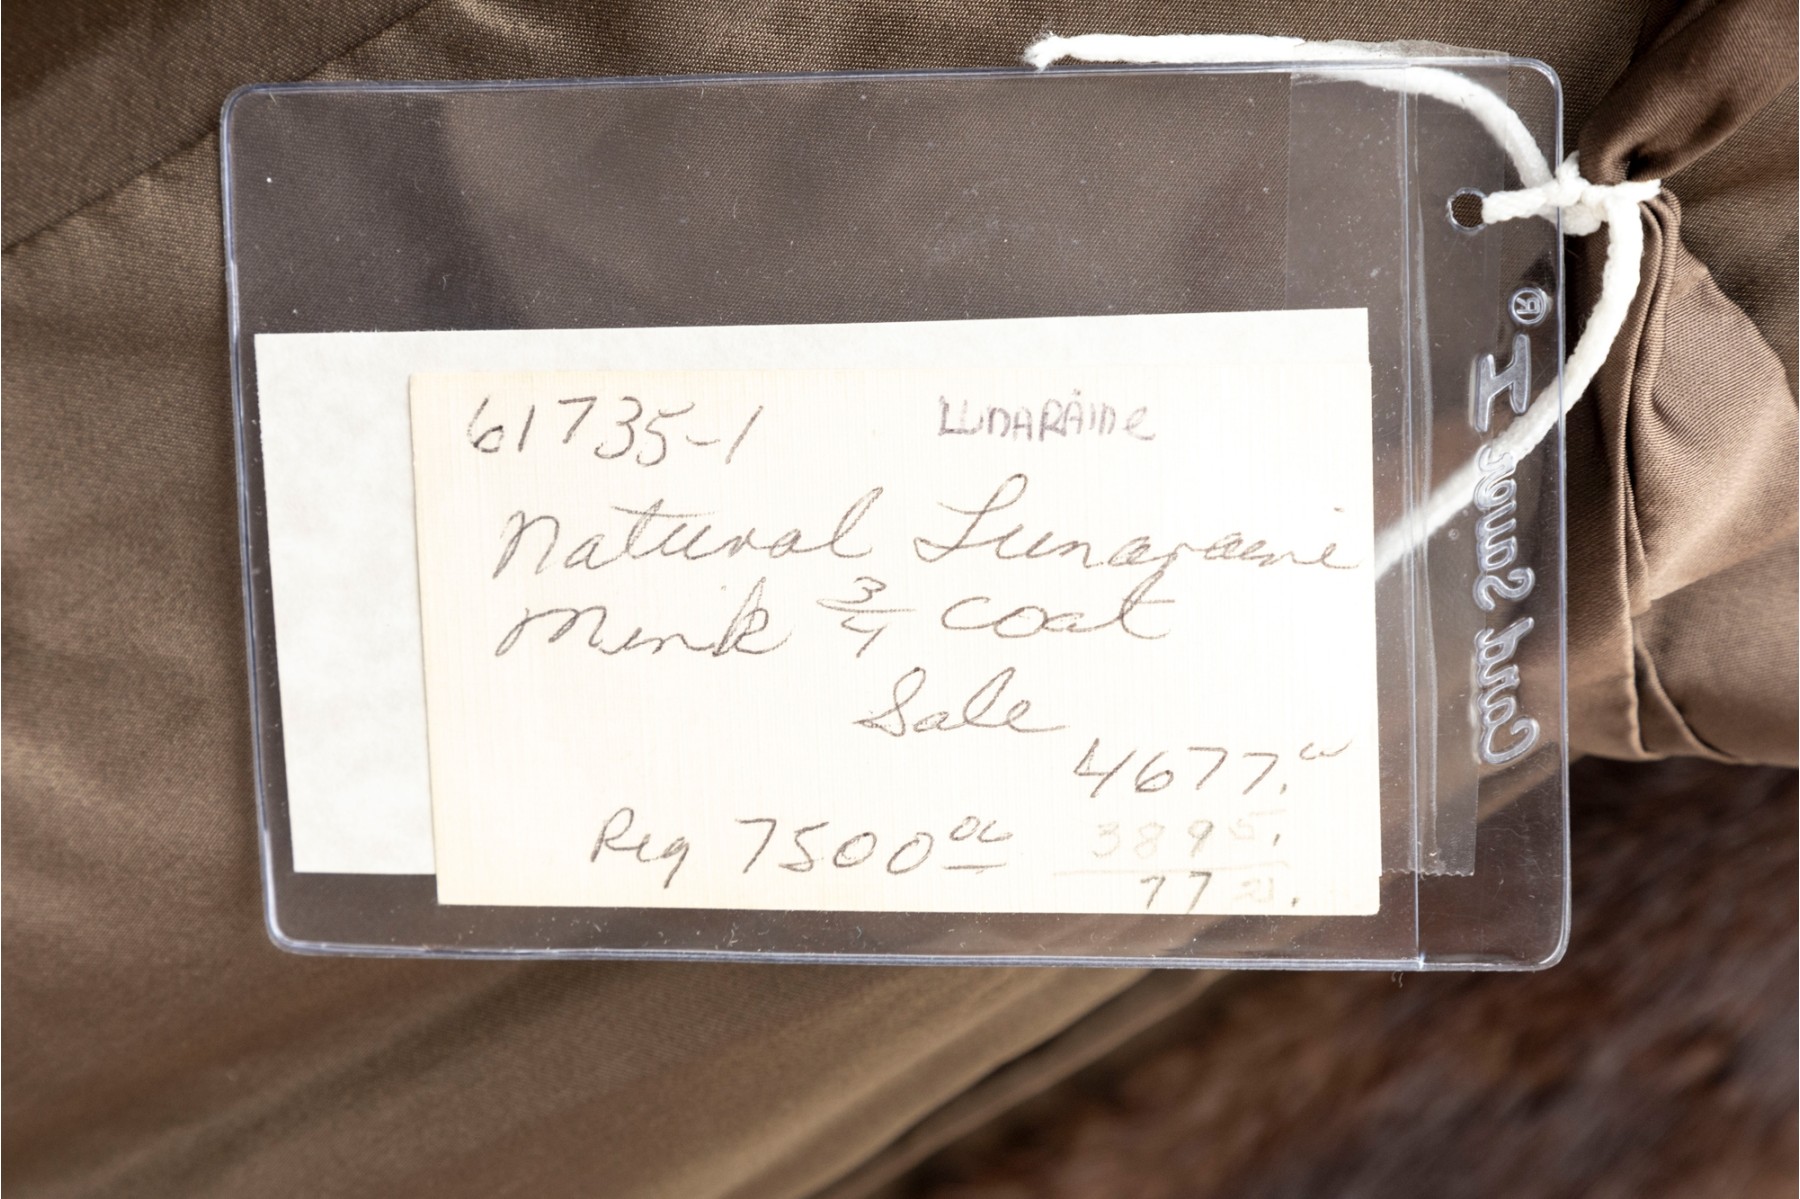 61735-1 LUNARAINE
Natural Lunaraine
Mink 3/4 coat
Sale
4677.00
Reg 7500 00 3895.
77
Card Saver I ®